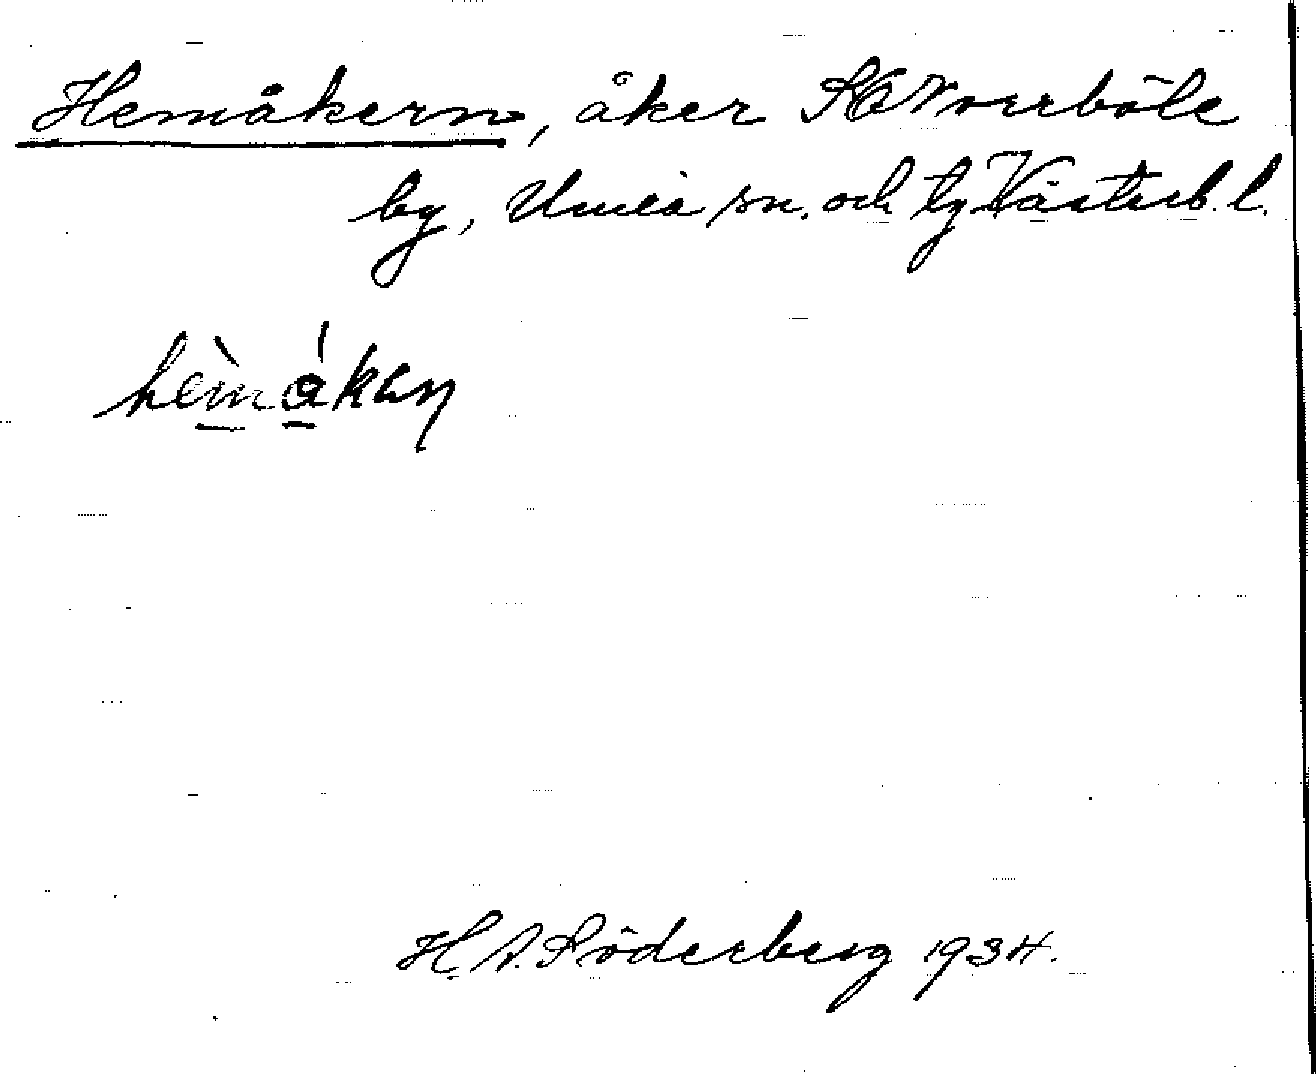 Hemåkern, åker SO Norrböle
by, Umeå sn. och tg Västerb. l.
hèmákaŋ
H. A. Söderberg 1934.